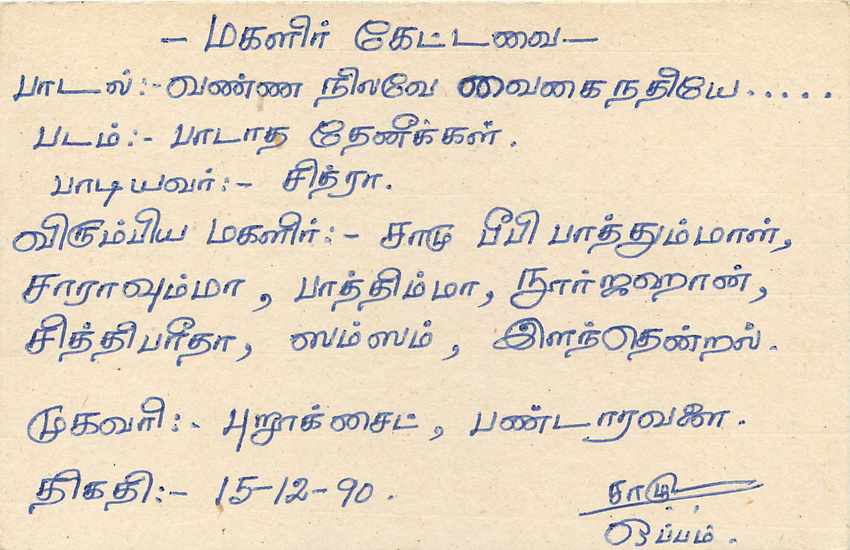 - மகளிர் கேட்டவை -
பாடல்:- வண்ண நிலவே வைகை நதியே.....
படம்:- பாடாத தேனீக்கள்.
பாடியவர்:- சித்ரா.
விரும்பிய மகளிர்:- சாடு பீபி பாத்தும்மாள்,
சாராவும்மா, பாத்திம்மா, நூர்ஜஹான்,
சித்திபரீதா, ஸம்ஸம், இளந்தென்றல்.
முகவரி:- புறூக்சைட், பண்டாரவளை.
திகதி:- 15-12-90.
சாடு
ஒப்பம்.